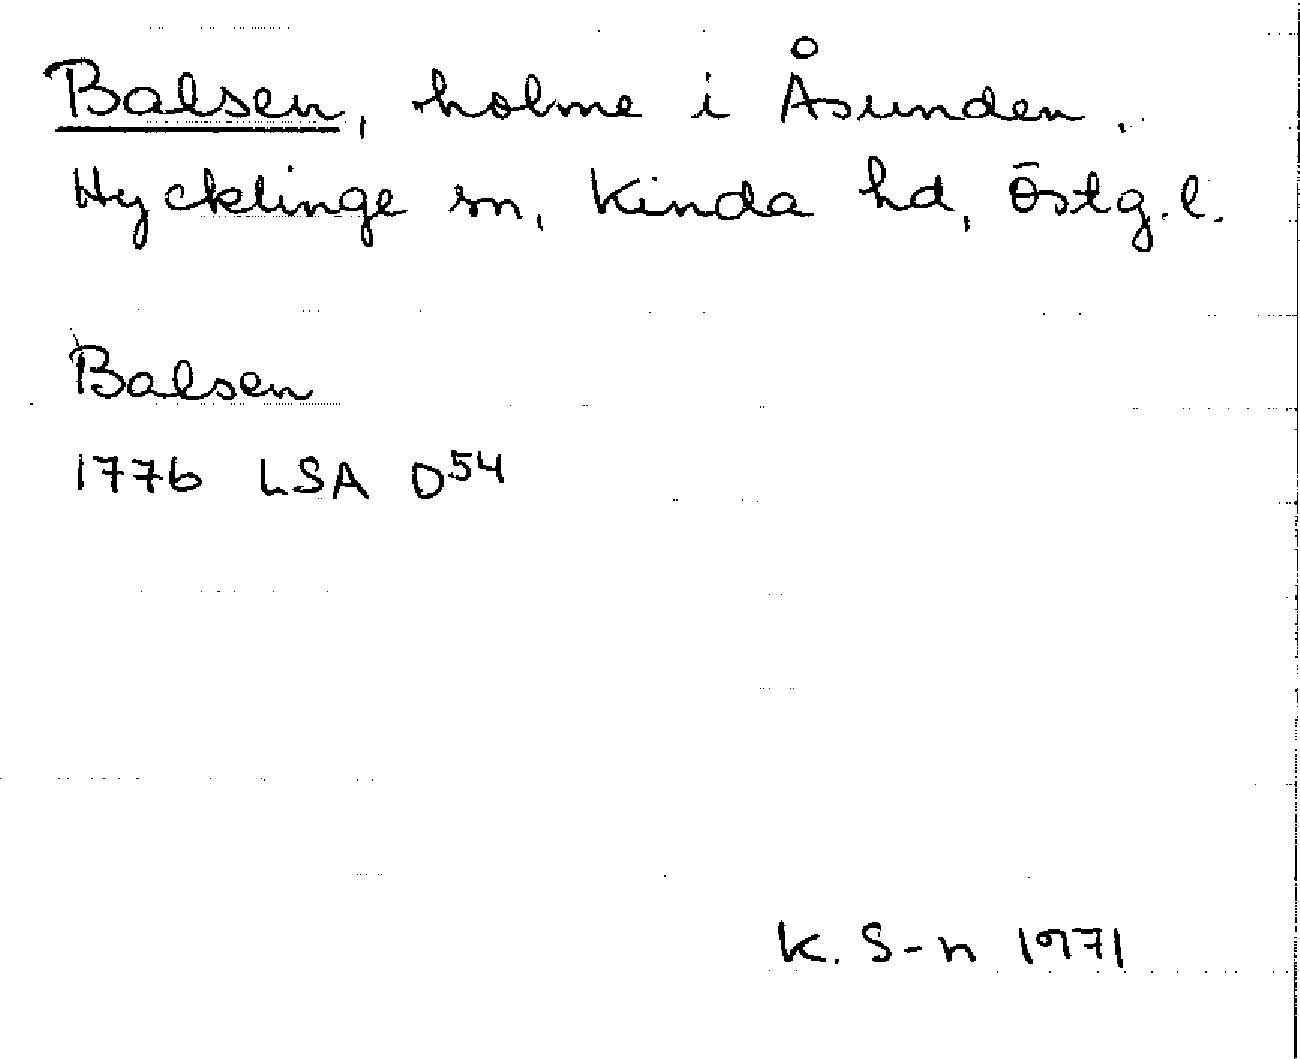 Balsen, holme i Åsunden,
Hycklinge sn, Kinda hd, Östg.l.
Balsen
1776 LSA D54
K. S-n 1971